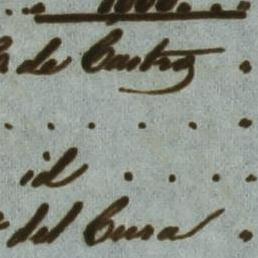 de Castro
id
del Cura